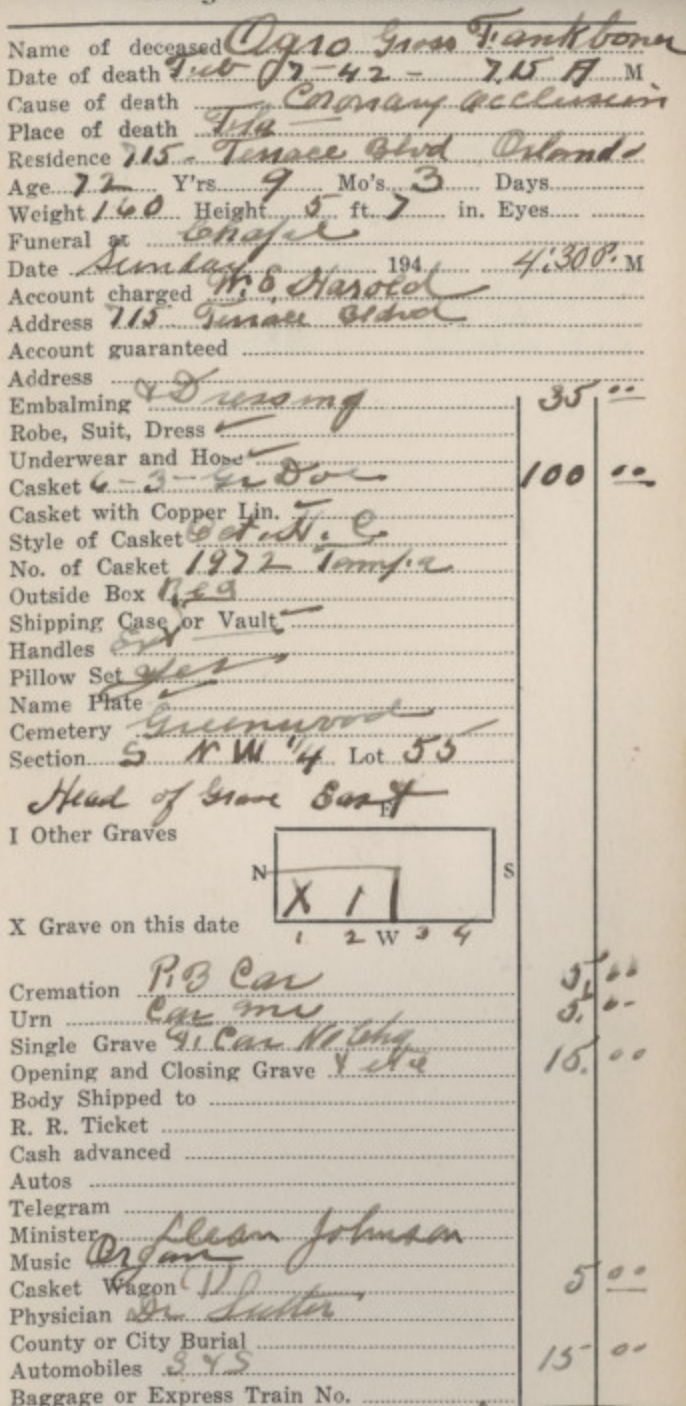 Name of deceased Ogro Gross Frankboner
Date of death Feb 07-42 - 7.15 A M
Cause of death Coronary occlusion
Place of death
Residence 715 - Terrace Blvd Orlando
Age 72 Y'rs. 9 Mo's 3 Days
Weight 160 Height 5 ft. 7 in. Eyes
Funeral at Chapel
Date Sunday 194 4:30 P. M
Account charged W. E. Harold
Address 715 Terrace Blvd
Account guaranteed
Address
Embalming & Dressing 35 00
Robe, Suit, Dress
Underwear and Hose
Casket 6-3- Gr Doe 100 00
Casket with Copper Lin.
Style of Casket Oct. H. C
No. of Casket 1972 Tampa
Outside Box Reg
Shipping Case or Vault
Handles Ext
Pillow Set yes
Name Plate
Cemetery Greenwood
Section S N W 1/4 Lot 55
Head of Grave East
E
I Other Graves
N S
X I
X Grave on this date
1 2 W 3 4
Cremation P.B Car 5. 00
Urn Car mi 5. 00
Single Grave Fl. Car No Chg
Opening and Closing Grave 15. 00
Body Shipped to
R. R. Ticket
Cash advanced
Autos
Telegram
Minister Dean Johnson
Music Organ
Casket Wagon (1) 5 00
Physician Dr
County or City Burial
Automobiles 3 & 5 15 00
Baggage or Express Train No.